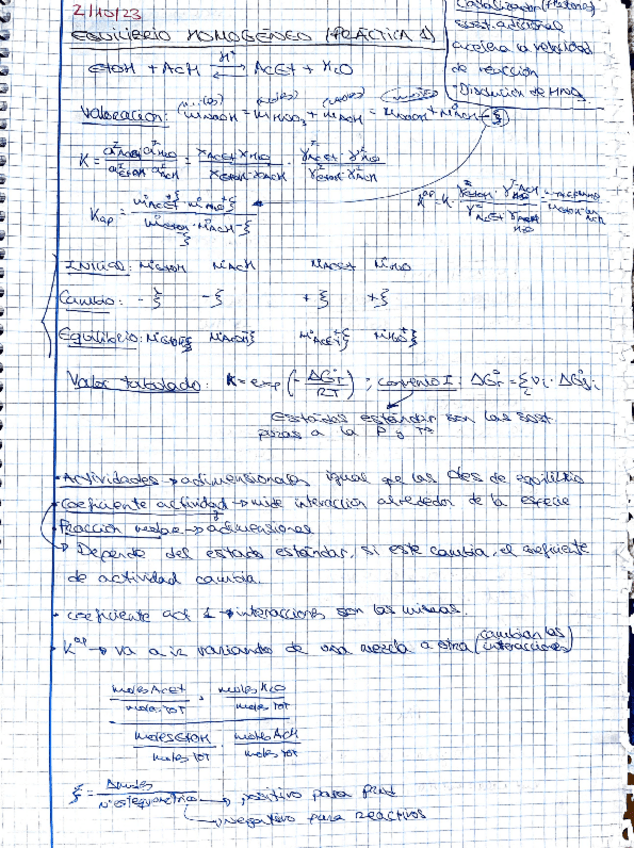 2/10/23
EQUILIBRIO HOMOGÉNEO (PRÁCTICA 1)
Catalizador (protones)
sust. adicional
acelera la velocidad
de reacción
Disolución de HNO3
EtOH + AcH ⇄ AcEt + H2O
H+
Valoración: nNaOH = nHNO3 + nAcH = nNaOH + n°AcH - ξ
K = a AcEt · a H2O / a EtOH · a AcH = xAcEt · xH2O / xEtOH · xAcH · γAcEt · γH2O / γEtOH · γAcH
Kap = n°AcEt + ξ · n°H2O + ξ / n°EtOH - ξ · n°AcH - ξ
Kap = K · γEtOH · γAcH / γAcEt · γH2O
Inicial: n°EtOH n°AcH n°AcEt n°H2O
Cambio: - ξ - ξ + ξ + ξ
Equilibrio: n°EtOH - ξ n°AcH - ξ n°AcEt + ξ n°H2O + ξ
Valor tabulado: K = exp (- ΔG°r / RT) ; convenio I: ΔG°r = Σ νi · ΔG°f,i
Estados estándar son las sust.
puras a la P y Tª
· Actividades → adimensionales igual que las ctes de equilibrio
· Coeficiente actividad → mide interacción alrededor de la especie
· Fracción molar → adimensional
→ Depende del estado estándar, si este cambia, el coeficiente
de actividad cambia.
· coeficiente act 1 → interacciones son las mismas.
· Kap → va a ir variando de una mezcla a otra (cambian las interacciones)
moles AcEt / moles TOT · moles H2O / moles TOT
moles EtOH / moles TOT · moles AcH / moles TOT
ξ = Δmoles / nº estequiométrico → positivo para prod
→ negativo para reactivos